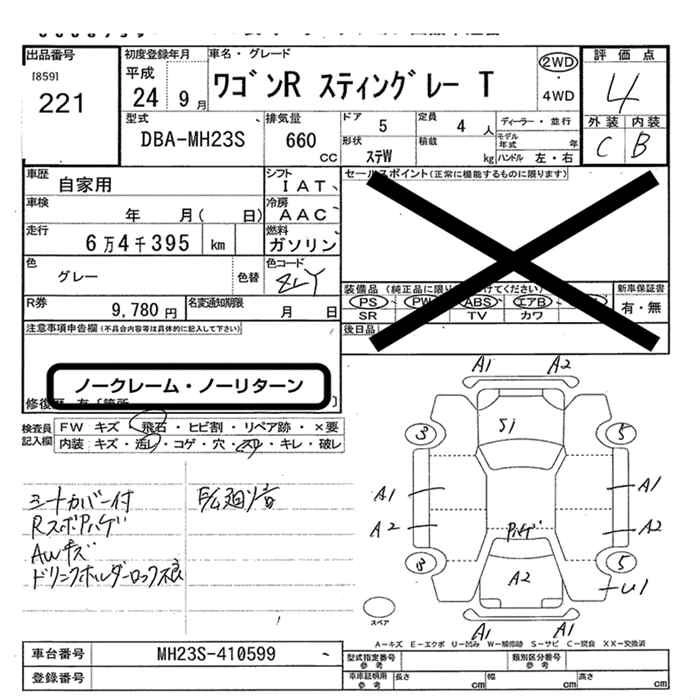 出品番号
[859]
221
初度登録年月
平成
24 9 月
車名・グレード
ワゴンR スティングレー T
2WD
4WD
評価点
4
外装 内装
C B
型式
DBA-MH23S
排気量
660
cc
ドア
5
定員
4 人
ディーラー・並行
モデル年式 年
形状
ステW
積載
kg
ハンドル 左・右
車歴
自家用
シフト
IAT
車検
年 月( 日)
冷房
AAC
走行
6万4千395 km
燃料
ガソリン
色
グレー
色替
色コード
ZLY
R券
9,780 円
名変通知期限
月 日
セールスポイント(正常に機能するものに限ります)
装備品(純正品に限り
けてください)
PS PW ABS エアB
SR TV カワ
新車保証書
有・無
後日品
注意事項申告欄(不具合内容等は具体的に記入して下さい)
ノークレーム・ノーリターン
検査員記入欄
FW キズ・飛石・ヒビ割・リペア跡・×要
内装 キズ・汚レ・コゲ・穴・スレ・キレ・破レ
シートカバー付
Rスポアハゲ
AWキズ
ドリンクホルダーロック不良
A1 A2
S1
3 5
A1 A1
A2 A2
ハゲ
3 5
A2
U1
A1 A1
スペア
A-キズ E-エクボ U-凹み W-補修跡 S-サビ C-腐食 XX-交換済
車台番号
MH23S-410599
登録番号
型式指定番号
参考
類別区分番号
参考
車庫証明用
参考
長さ cm
幅 cm
高さ cm